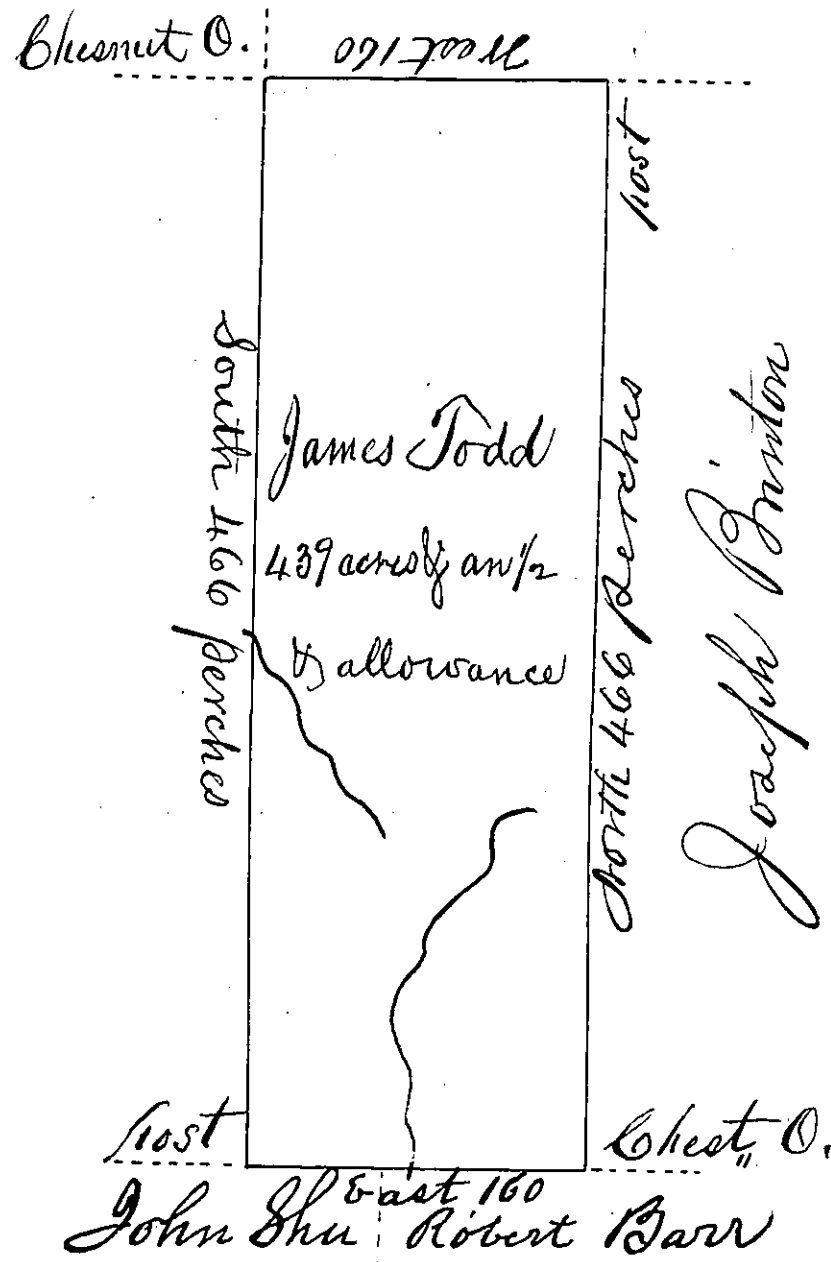 Chesnut O.
West 160
post
South 466 perches
James Todd
439 acres & an 1/2
& allowance
North 466 perches
Joseph Brinton
Post
Chest,, O.
East 160
John Shu
Robert Barr